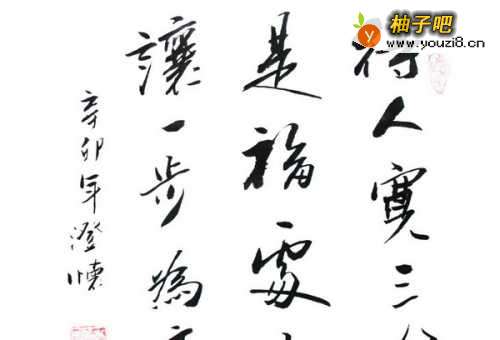 待人寬三
是福處
讓一步為
辛卯年澄懷
柚子吧
www.youzi8.cn